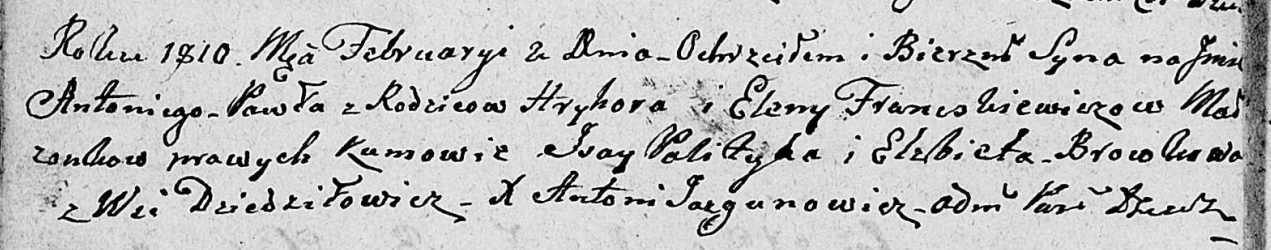 Roku 1810. Mca Februaryi 2 Dnia - Ochrzciłem i Bierzm Syna na Jmie
Antoniego - Pawła z Rodzicow Hryhora i Eleny Franciszkiewiczow Mał
zonkow prawych Kumowie Jsay Palityka i Elzbieta - Browkowa
z Wsi Dziedziłowicz - X Antoni Jazgunowicz - adm Par